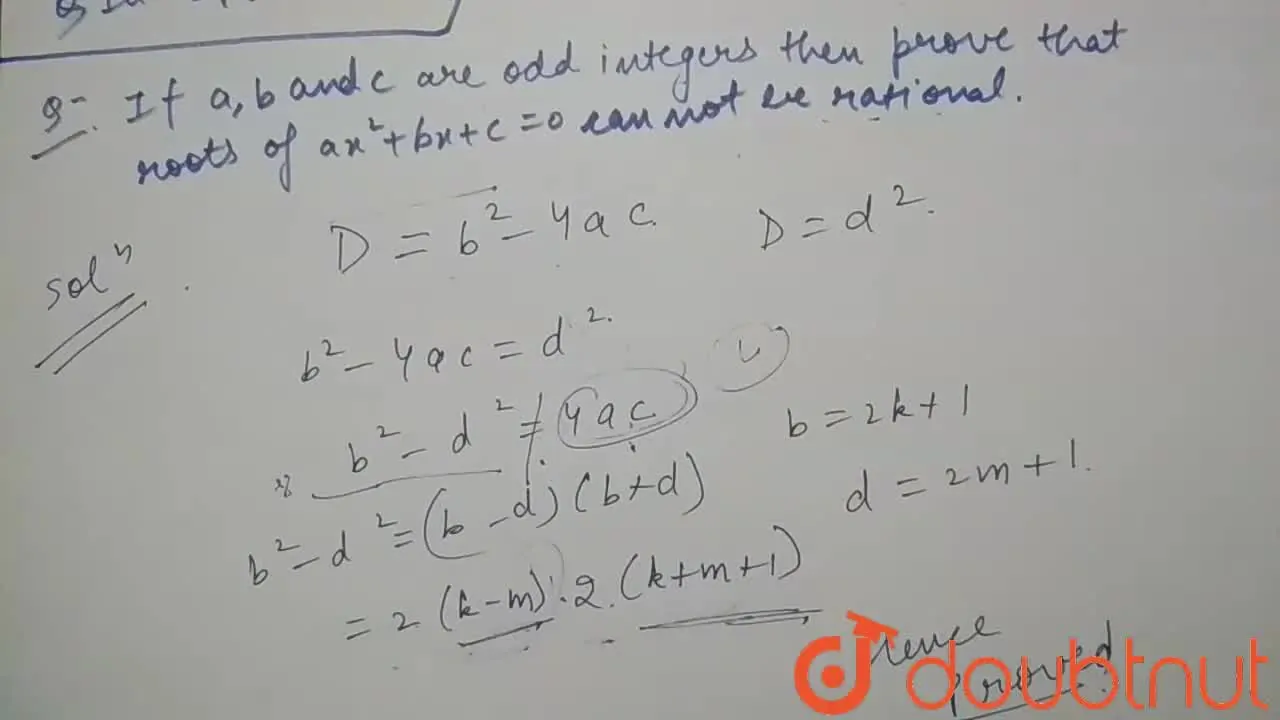 Q- If a, b and c are odd integers then prove that
roots of ax²+bx+c=0 can not be rational.
Solⁿ
D = b²-4ac D = d².
b²-4ac = d².
b²-d² ≠ 4ac b = 2k+1
b²-d² = (b-d)(b+d) d = 2m+1.
= 2(k-m)·2.(k+m+1)
Hence
Proved
doubtnut